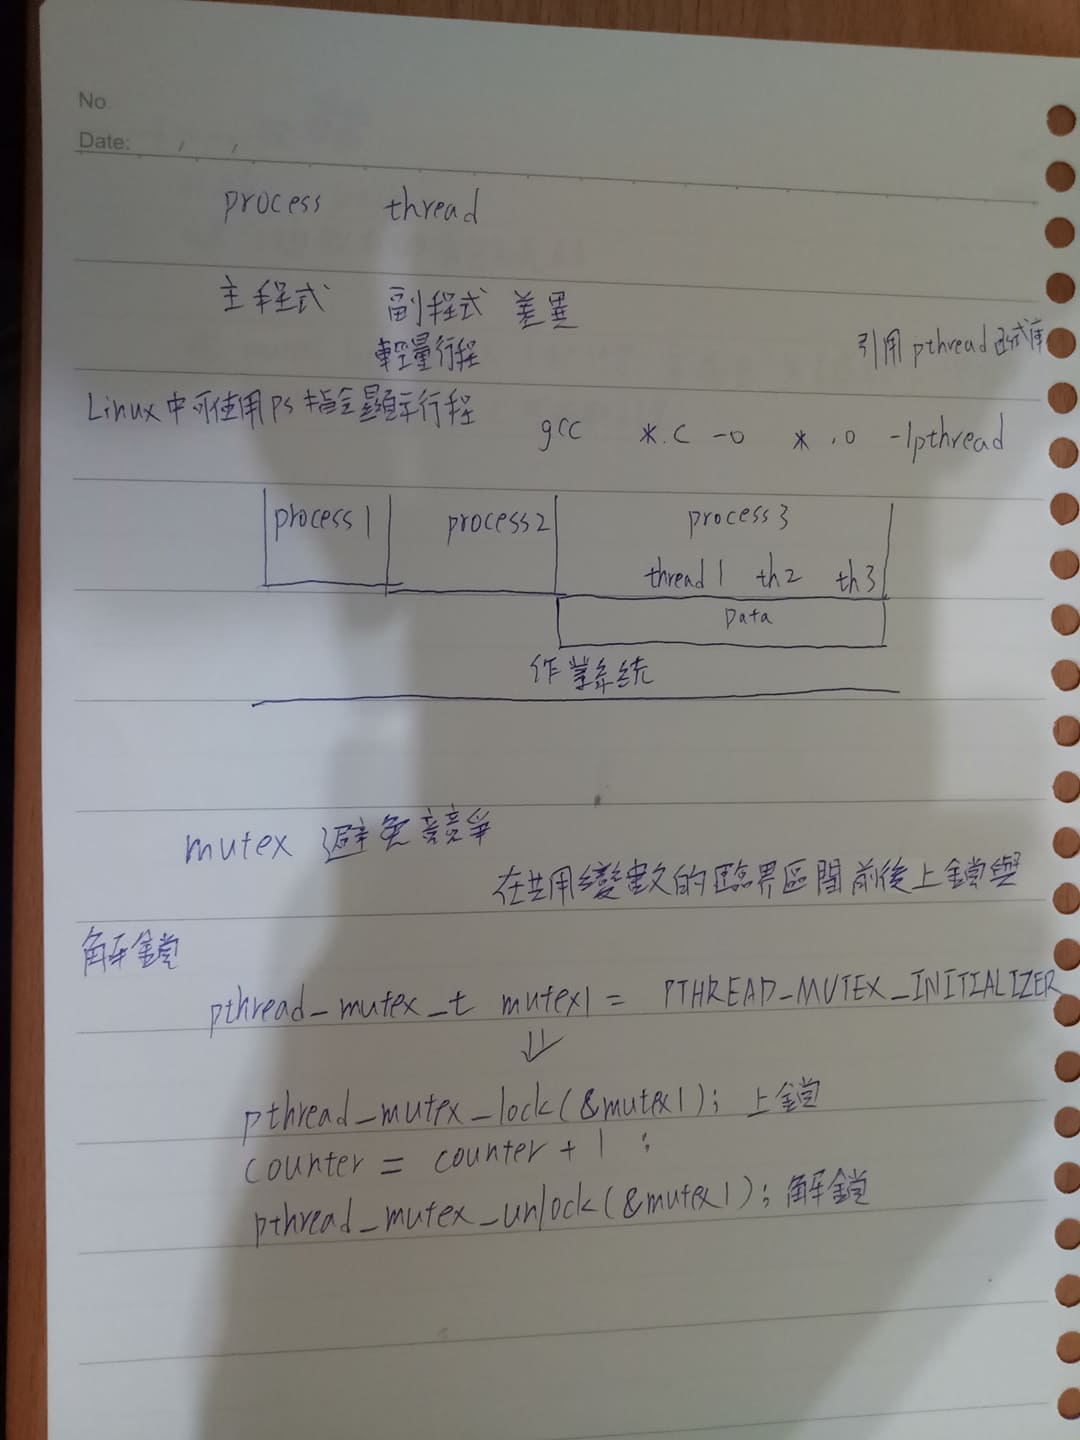 No.
Date: / /
process thread
主程式 副程式 差異
輕量行程
引用pthread函式庫
Linux中可使用ps指令顯示行程
gcc *.c -o *.o -lpthread
process1 process2 process3
thread1 th2 th3
Data
作業系統
mutex 避免競爭
在共用變數的臨界區間前後上鎖與
解鎖
pthread_mutex_t mutex1 = PTHREAD_MUTEX_INITIALIZER
⇓
pthread_mutex_lock(&mutex1); 上鎖
counter = counter + 1 ;
pthread_mutex_unlock(&mutex1); 解鎖